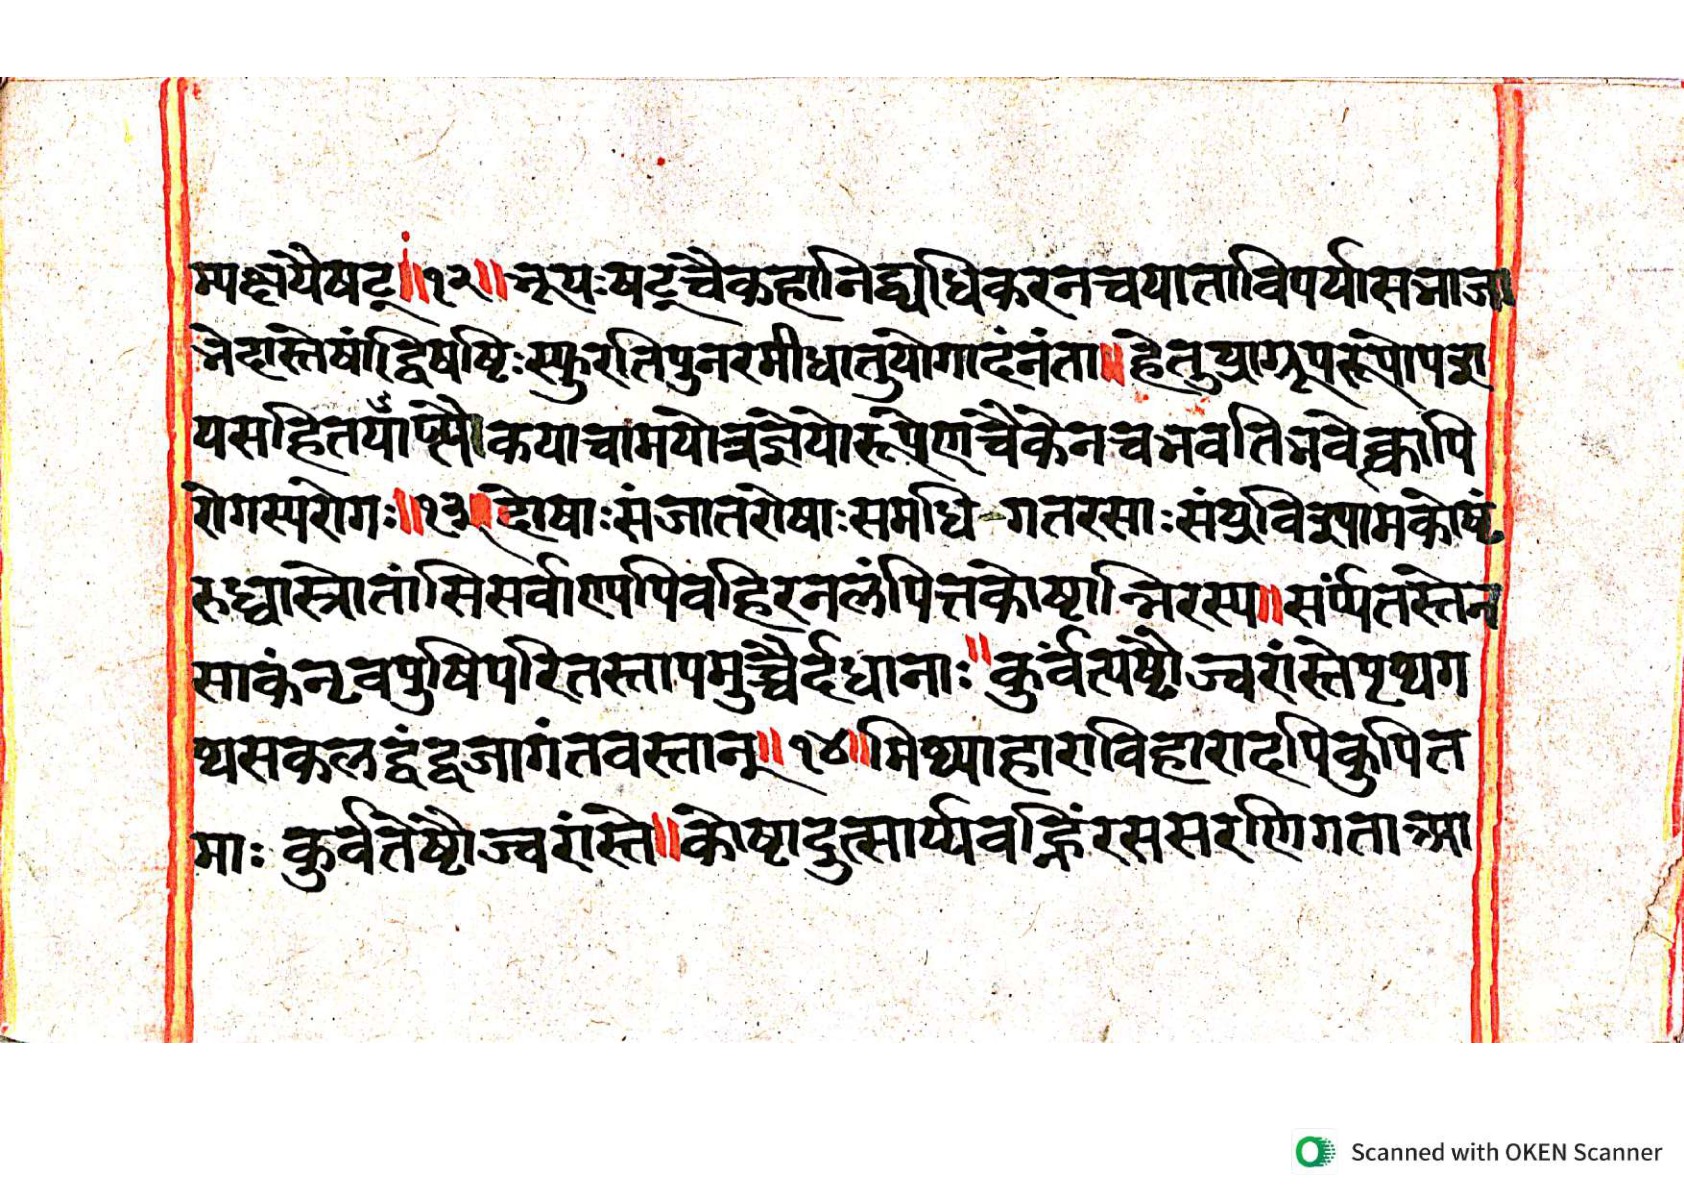 म्यक्षयैषट्॥१२॥ भूयःषट्चैकहानिद्व्यधिकरनचयाताविपर्यासभाजा
भेदास्तेषांद्विषष्टिःस्फुरतिपुनरमीधातुयोगादंनंता॥हेतुप्राग्रूपरूपोपश
यसहितयाँप्त्यैकयाचामयोत्रज्ञेयोरूपेणचैकेनचभवतिभवेत्क्वापि
रोगस्यरोगः॥१३॥दोषाःसंजातरोषाःसमधि-गतरसाःसंप्रविश्यामकोष्टं
रुध्वास्त्रोतांसिसर्वाण्यपिवहिरनलंपित्तकोष्टान्निरस्य॥सर्प्पंतस्तेन
साकंनृवपुषिपरितस्तापमुच्चैर्दधानाः॥कुर्वंत्यष्टौज्वरांस्तेपृथग
थसकलद्वंद्वजागंतवस्तान्॥१४॥मिथ्याहाराविहारादपिकुपित
माः कुर्वतेष्टौज्वरांस्ते॥कोष्टादुत्सार्य्यवह्निंरससरणिगता
Scanned with OKEN Scanner